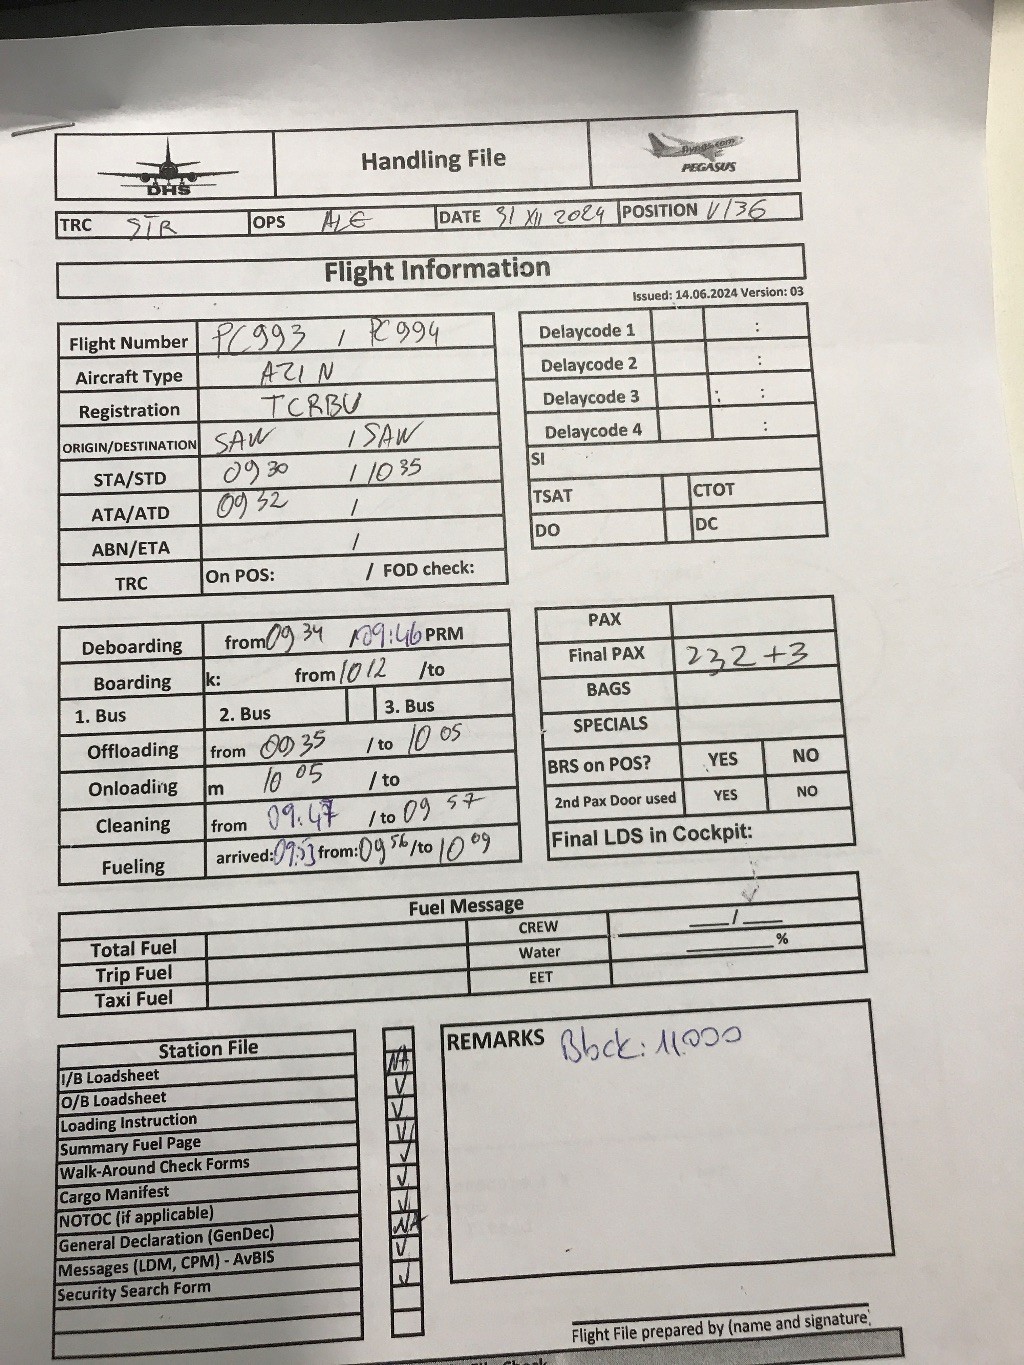 DHS
Handling File
flypgs.com
PEGASUS
TRC STR OPS ALE DATE 31 XII 2024 POSITION V136
Flight Information
Issued: 14.06.2024 Version: 03
Flight Number PC993 / PC994
Aircraft Type A21N
Registration TCRBU
ORIGIN/DESTINATION SAW / SAW
STA/STD 0930 / 1035
ATA/ATD 0932 /
ABN/ETA /
TRC On POS: / FOD check:
Delaycode 1 :
Delaycode 2 :
Delaycode 3 : :
Delaycode 4 :
SI
TSAT CTOT
DO DC
Deboarding from 0934 / 09:46 PRM
Boarding k: from 1012 /to
1. Bus 2. Bus 3. Bus
Offloading from 0935 / to 1005
Onloading m 1005 / to
Cleaning from 09:47 / to 0957
Fueling arrived: 09:53 from: 0956 /to 1009
PAX
Final PAX 232+3
BAGS
SPECIALS
BRS on POS? YES NO
2nd Pax Door used YES NO
Final LDS in Cockpit:
Fuel Message
Total Fuel CREW ___/___
Trip Fuel Water ______%
Taxi Fuel EET
Station File
I/B Loadsheet NA
O/B Loadsheet ✓
Loading Instruction ✓
Summary Fuel Page ✓
Walk-Around Check Forms ✓
Cargo Manifest ✓
NOTOC (if applicable) ✓
General Declaration (GenDec) NA
Messages (LDM, CPM) - AvBIS ✓
Security Search Form ✓
REMARKS Block: 11.000
Flight File prepared by (name and signature)